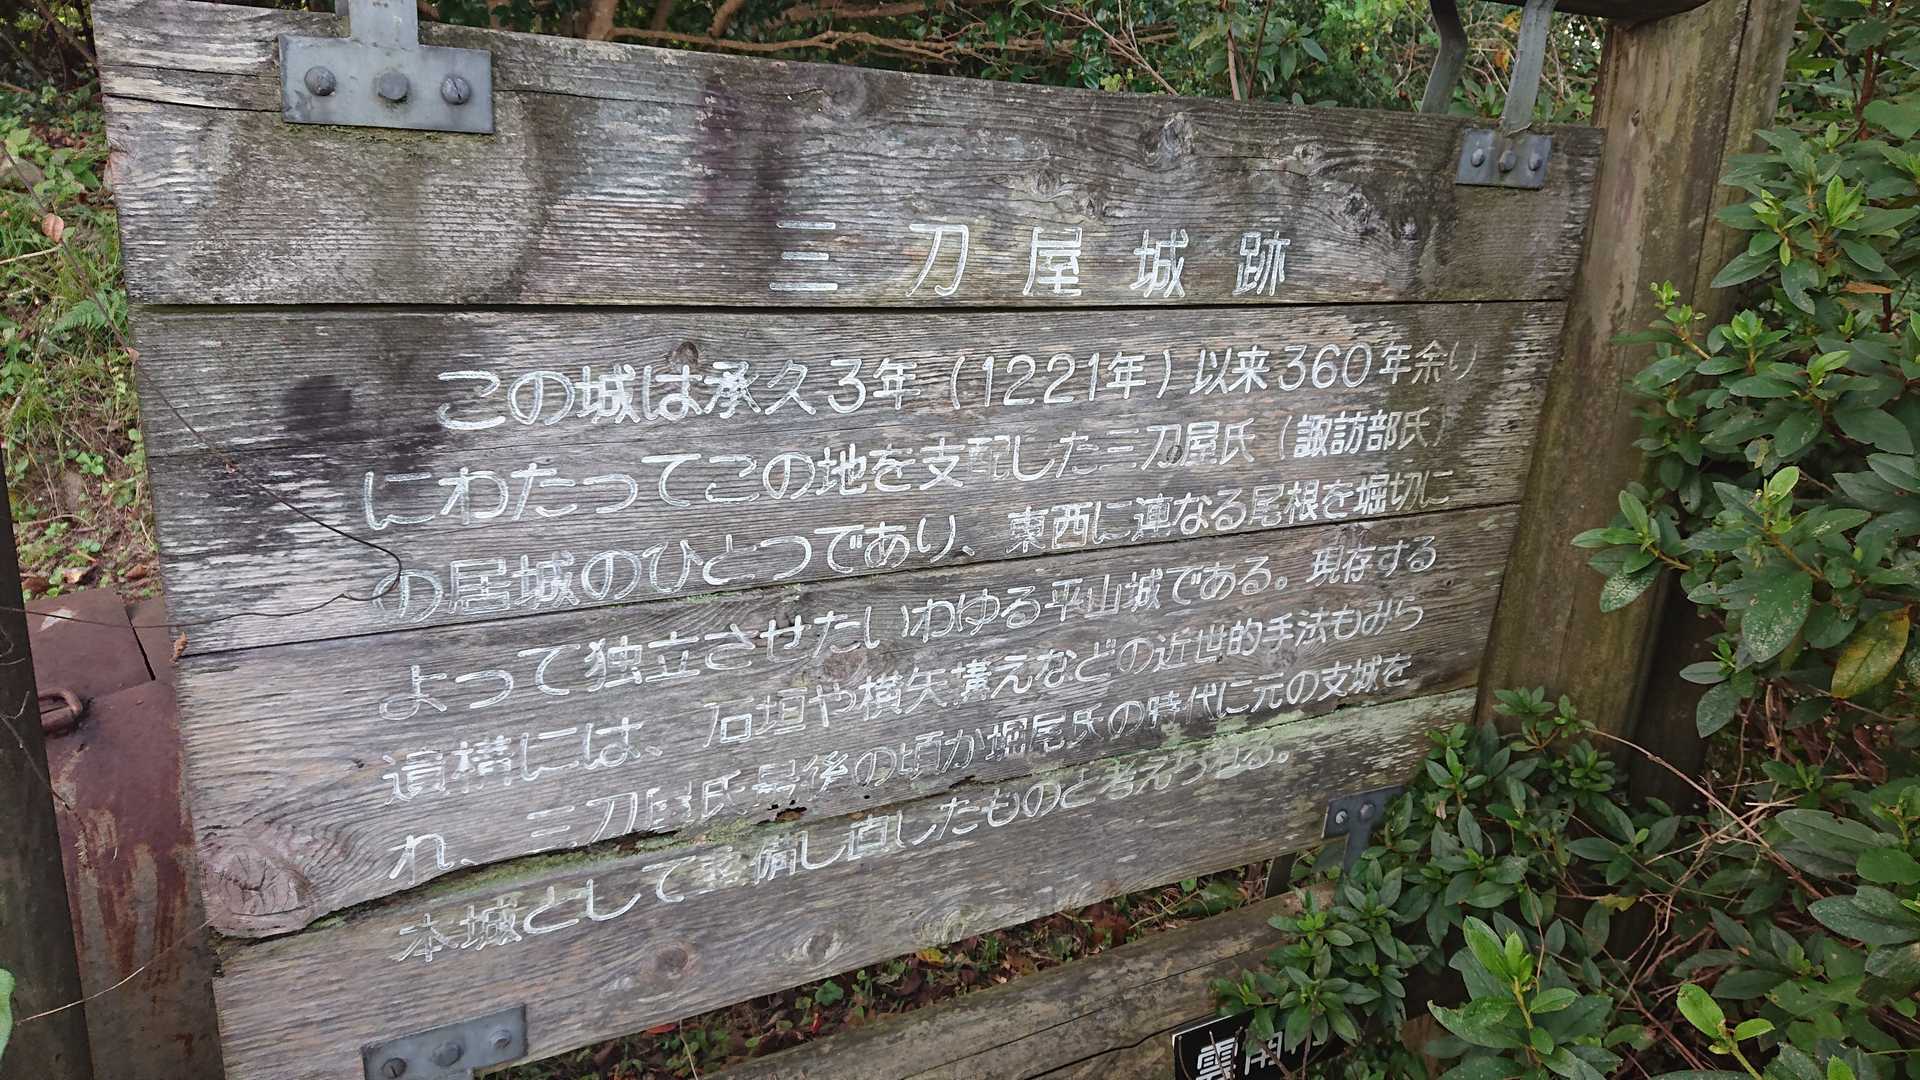 三刀屋城跡
この城は承久3年(1221年)以来360年余り
にわたってこの地を支配した三刀屋氏(諏訪部氏)
の居城のひとつであり、東西に連なる尾根を堀切に
よって独立させたいわゆる平山城である。現存する
遺構には、石垣や横矢構えなどの近世的手法もみら
れ、三刀屋氏最後の頃か堀尾氏の時代に元の支城を
本城として整備し直したものと考えられる。
雲南